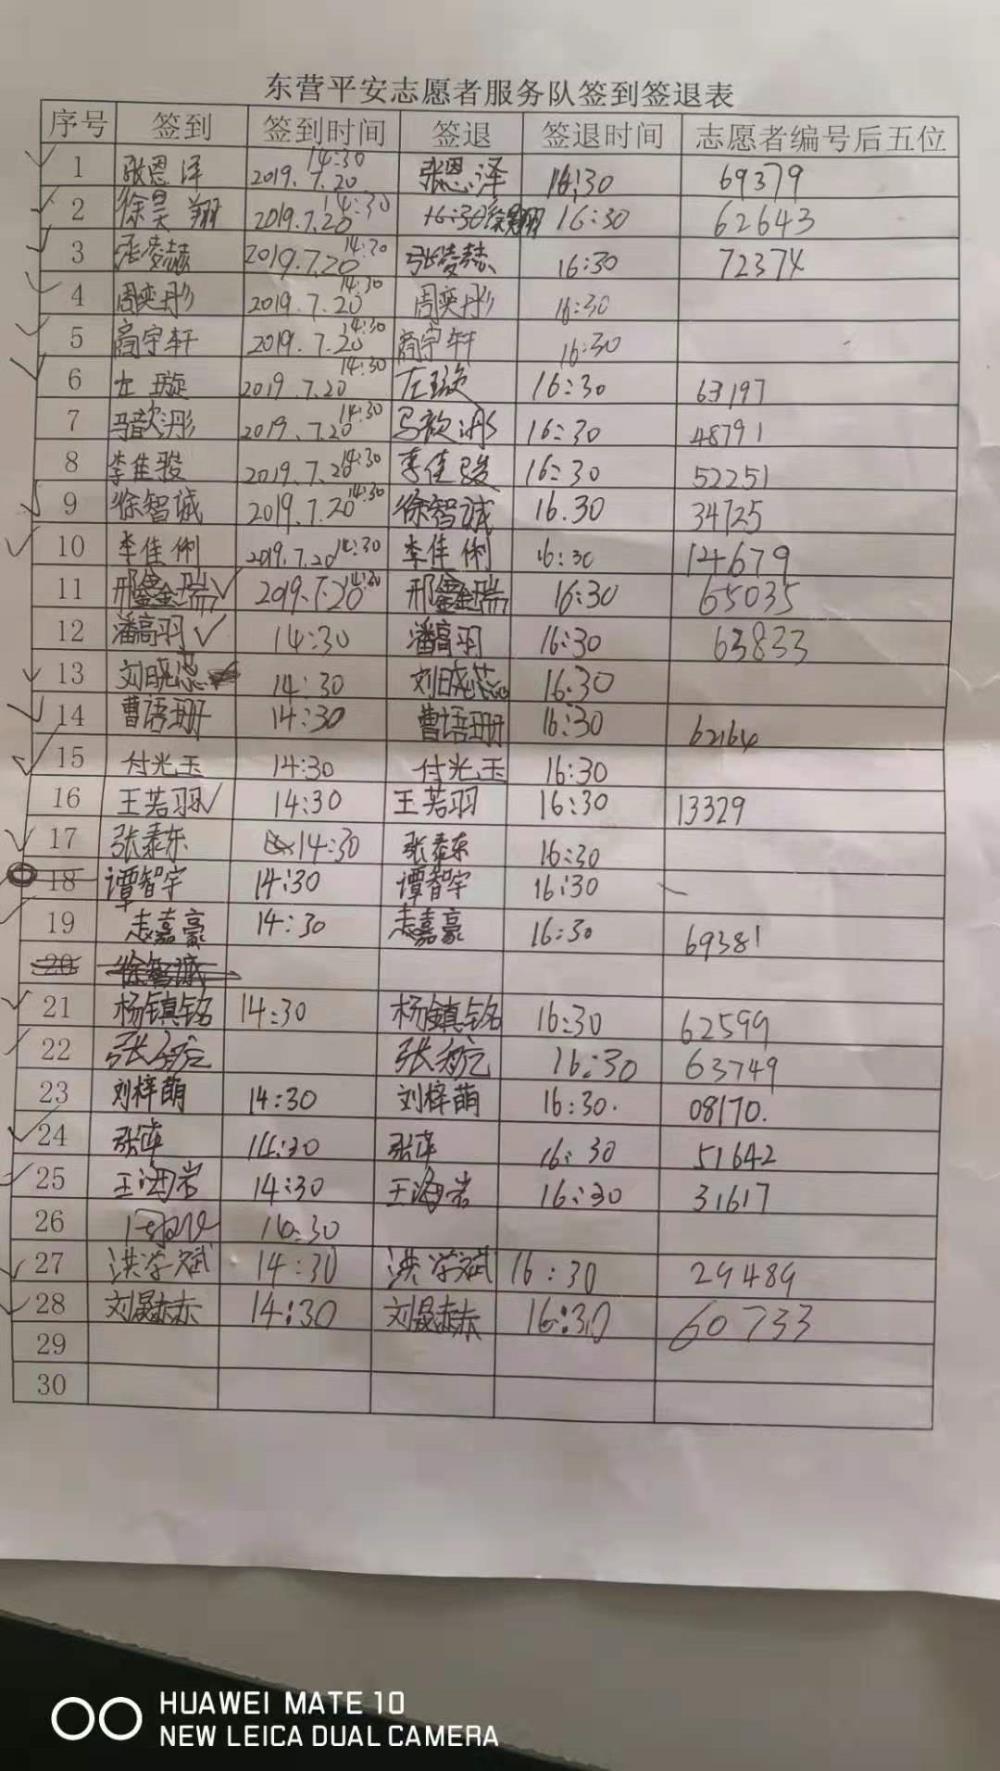 东营平安志愿者服务队签到签退表
序号 签到 签到时间 签退 签退时间 志愿者编号后五位
1 张恩泽 2019.7.20 14:30 张恩泽 16:30 69379
2 徐昊翔 2019.7.20 14:30 16:30 徐昊翔 16:30 62643
3 张凌赫 2019.7.20 14:30 张凌赫 16:30 72374
4 周奕彤 2019.7.20 14:30 周奕彤 16:30
5 商宇轩 2019.7.20 14:30 商宇轩 16:30
6 左璇 2019.7.20 14:30 左璇 16:30 63197
7 马歆彤 2019.7.20 14:30 马歆彤 16:30 48791
8 李佳骏 2019.7.20 14:30 李佳骏 16:30 52251
9 徐智诚 2019.7.20 14:30 徐智诚 16.30 34725
10 李佳俐 2019.7.20 14:30 李佳俐 16:30 14679
11 邢鑫瑞 2019.7.20 14:30 邢鑫瑞 16:30 65035
12 潘高羽 14:30 潘高羽 16:30 63833
13 刘晓蕊 14:30 刘晓蕊 16.30
14 曹语珊 14:30 曹语珊 16:30 62164
15 付光玉 14:30 付光玉 16:30
16 王若羽 14:30 王若羽 16:30 13329
17 张泰东 14:30 张泰东 16:30
18 谭智宇 14:30 谭智宇 16:30
19 志嘉豪 14:30 志嘉豪 16:30 69381
20 徐智诚
21 杨镇铭 14:30 杨镇铭 16:30 62599
22 张 张 16:30 63749
23 刘梓萌 14:30 刘梓萌 16:30. 08170.
24 张 14:30 张 16:30 51642
25 王海岩 14:30 王海岩 16:30 31617
26 14:30
27 洪学斌 14:30 洪学斌 16:30 29489
28 刘晟赫 14:30 刘晟赫 16:30 60733
29
30
HUAWEI MATE 10
NEW LEICA DUAL CAMERA